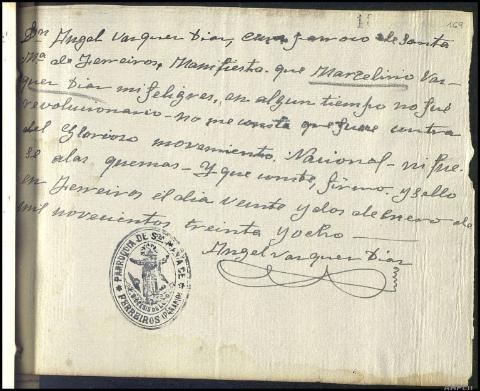 169
Dn Angel Vazquez Diaz, cura párroco de Santa
Mª de Ferreiros, Manifiesta que Marcelino Vaz-
quez Diaz mi feligres, en algun tiempo no fue
revolucionario - no me consta que fuese contra
del Glorioso movamiento Nacional - ni fue-
se a las quemas - Y que conste, firmo y sello
en Ferreiros el dia veinte y dos de Enero de
mil novecientos treinta y ocho
Angel Vazquez Diaz
PARROQUIA DE Sta MARIA DE
FERREIROS